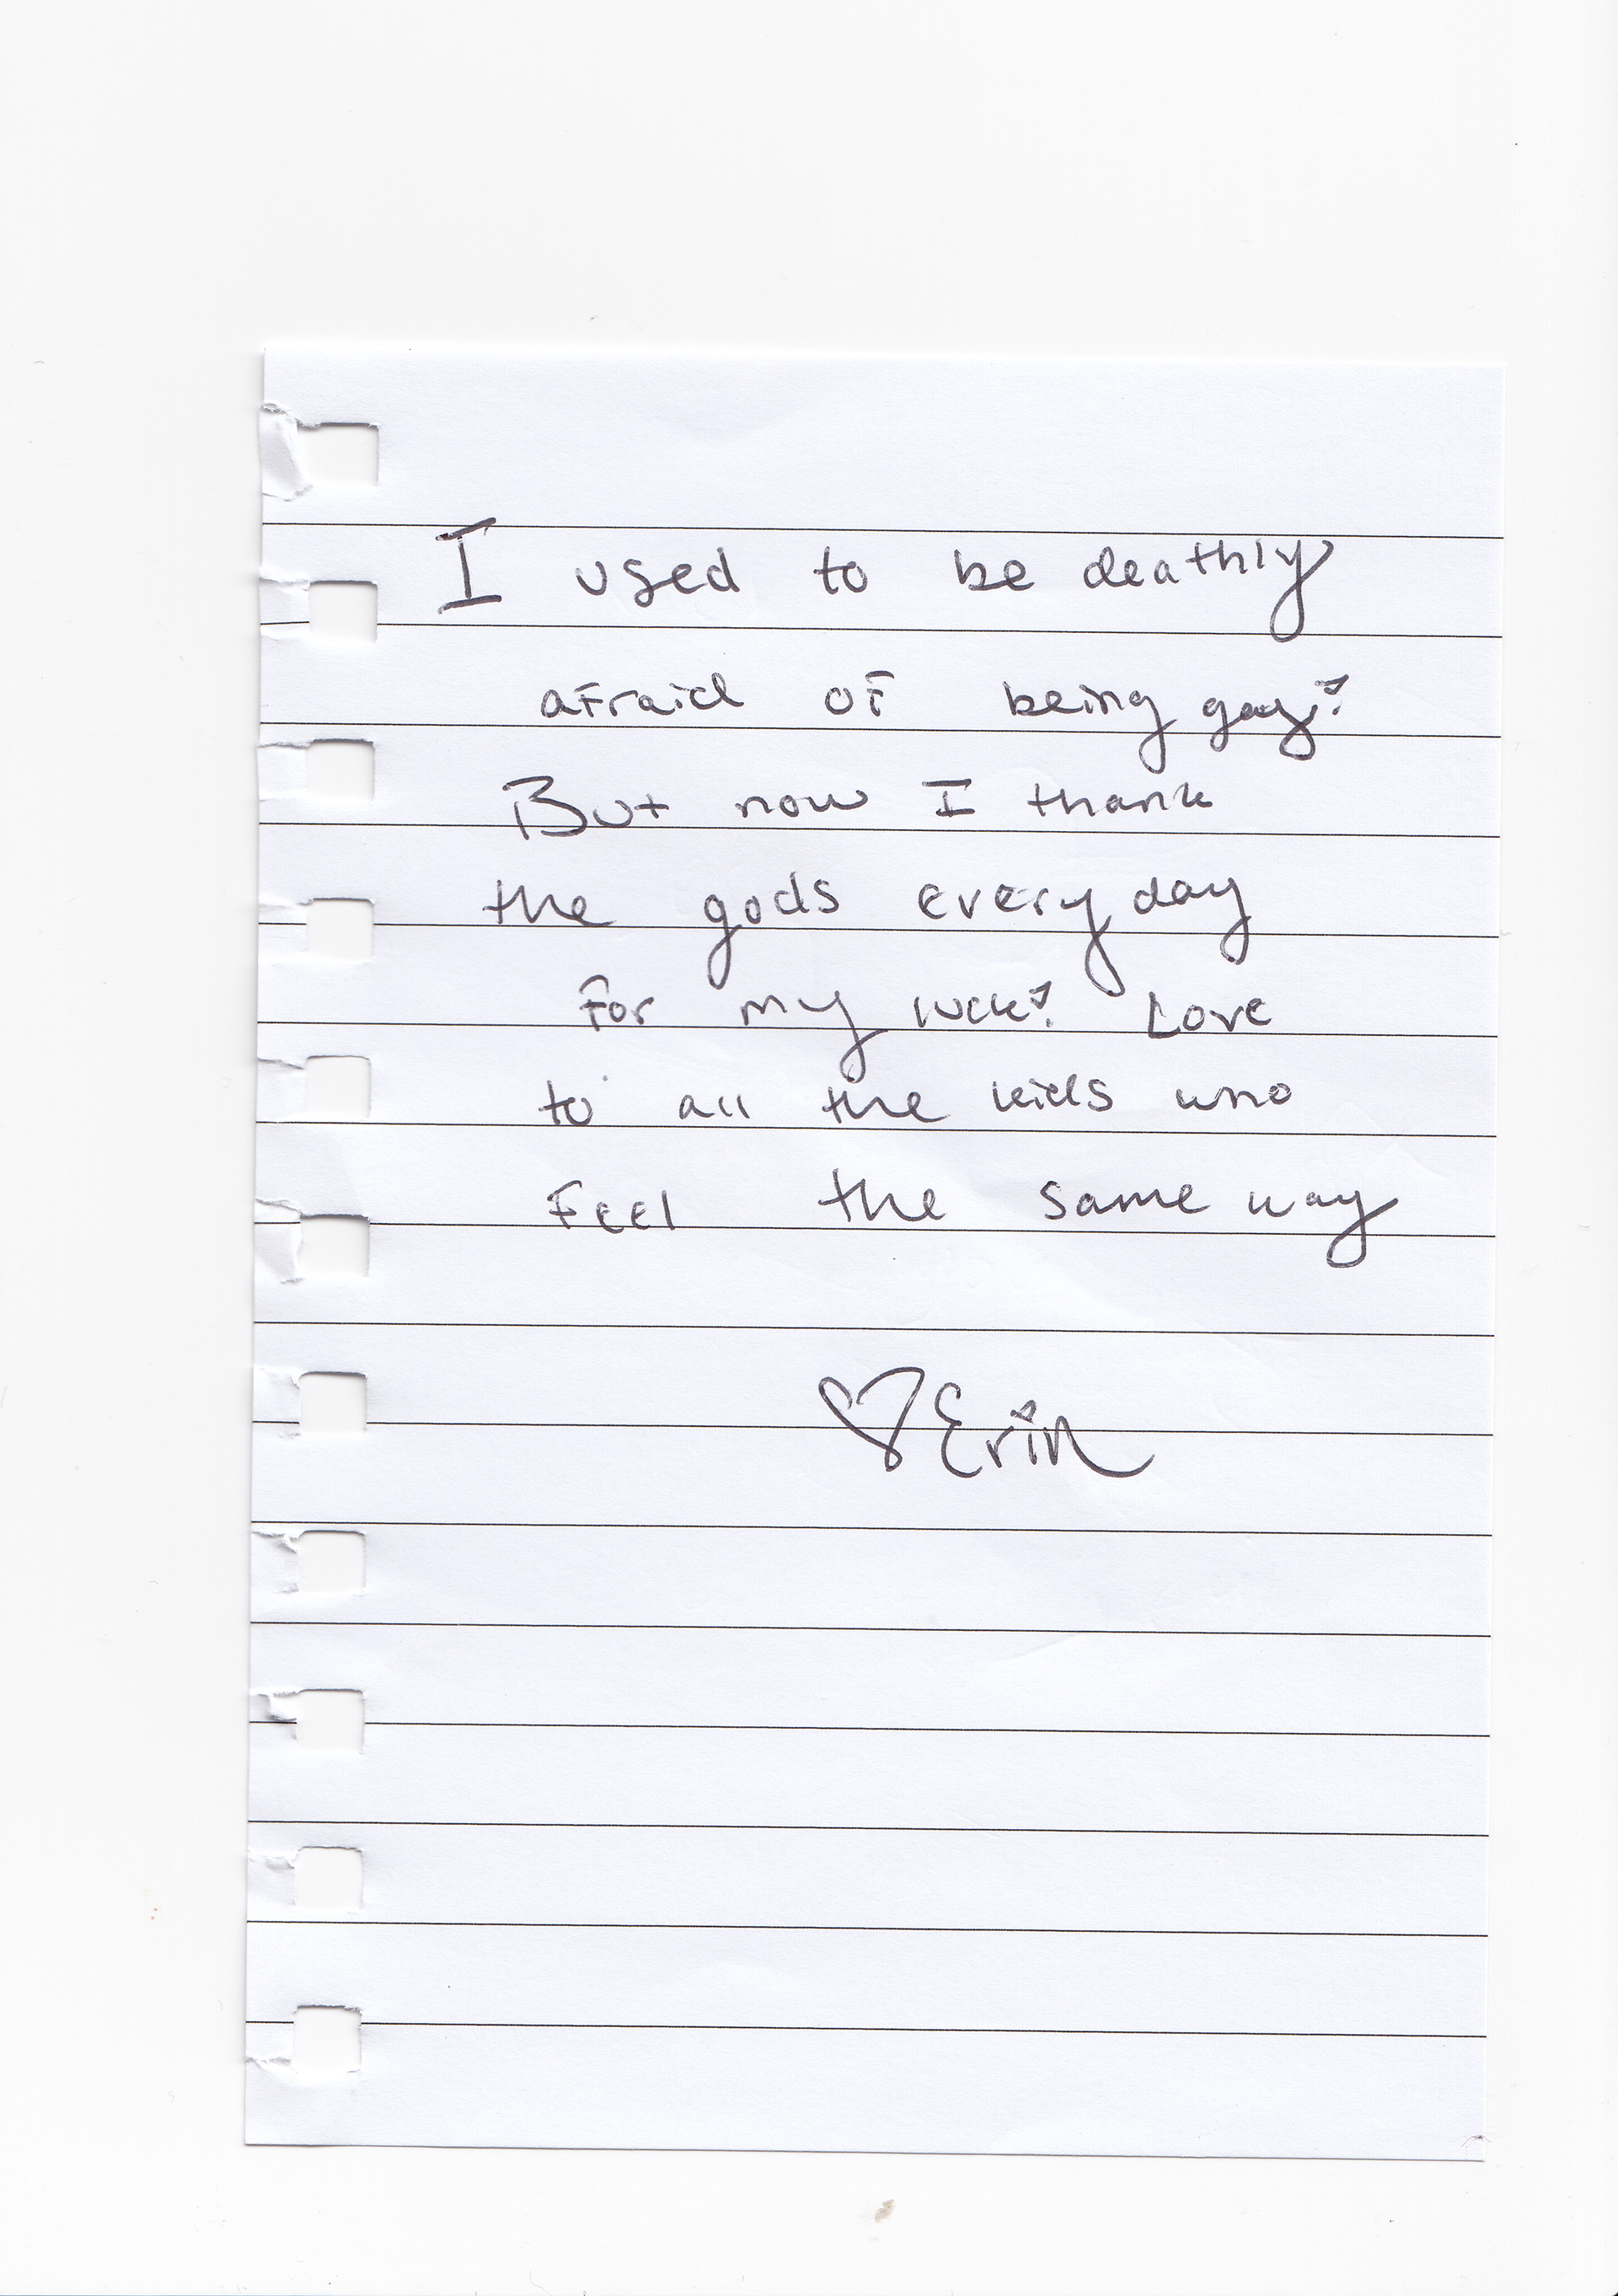 I used to be deathly
afraid of being gay!
But now I thank
the gods every day
for my luck! Love
to all the kids who
feel the same way
♡ Erin